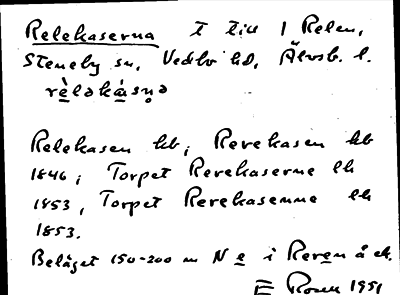 Relekaserna T till 1 Relen,
Steneby sn, Vedbo hd, Älvsb. l.
rèləkásnə
Relekasen hb; Revekasen hb
1846; Torpet Revekaserne lh
1853, Torpet Revekasenne lh
1853.
Beläget 150-200 m N e i Reven å ek.
E Rosen 1951